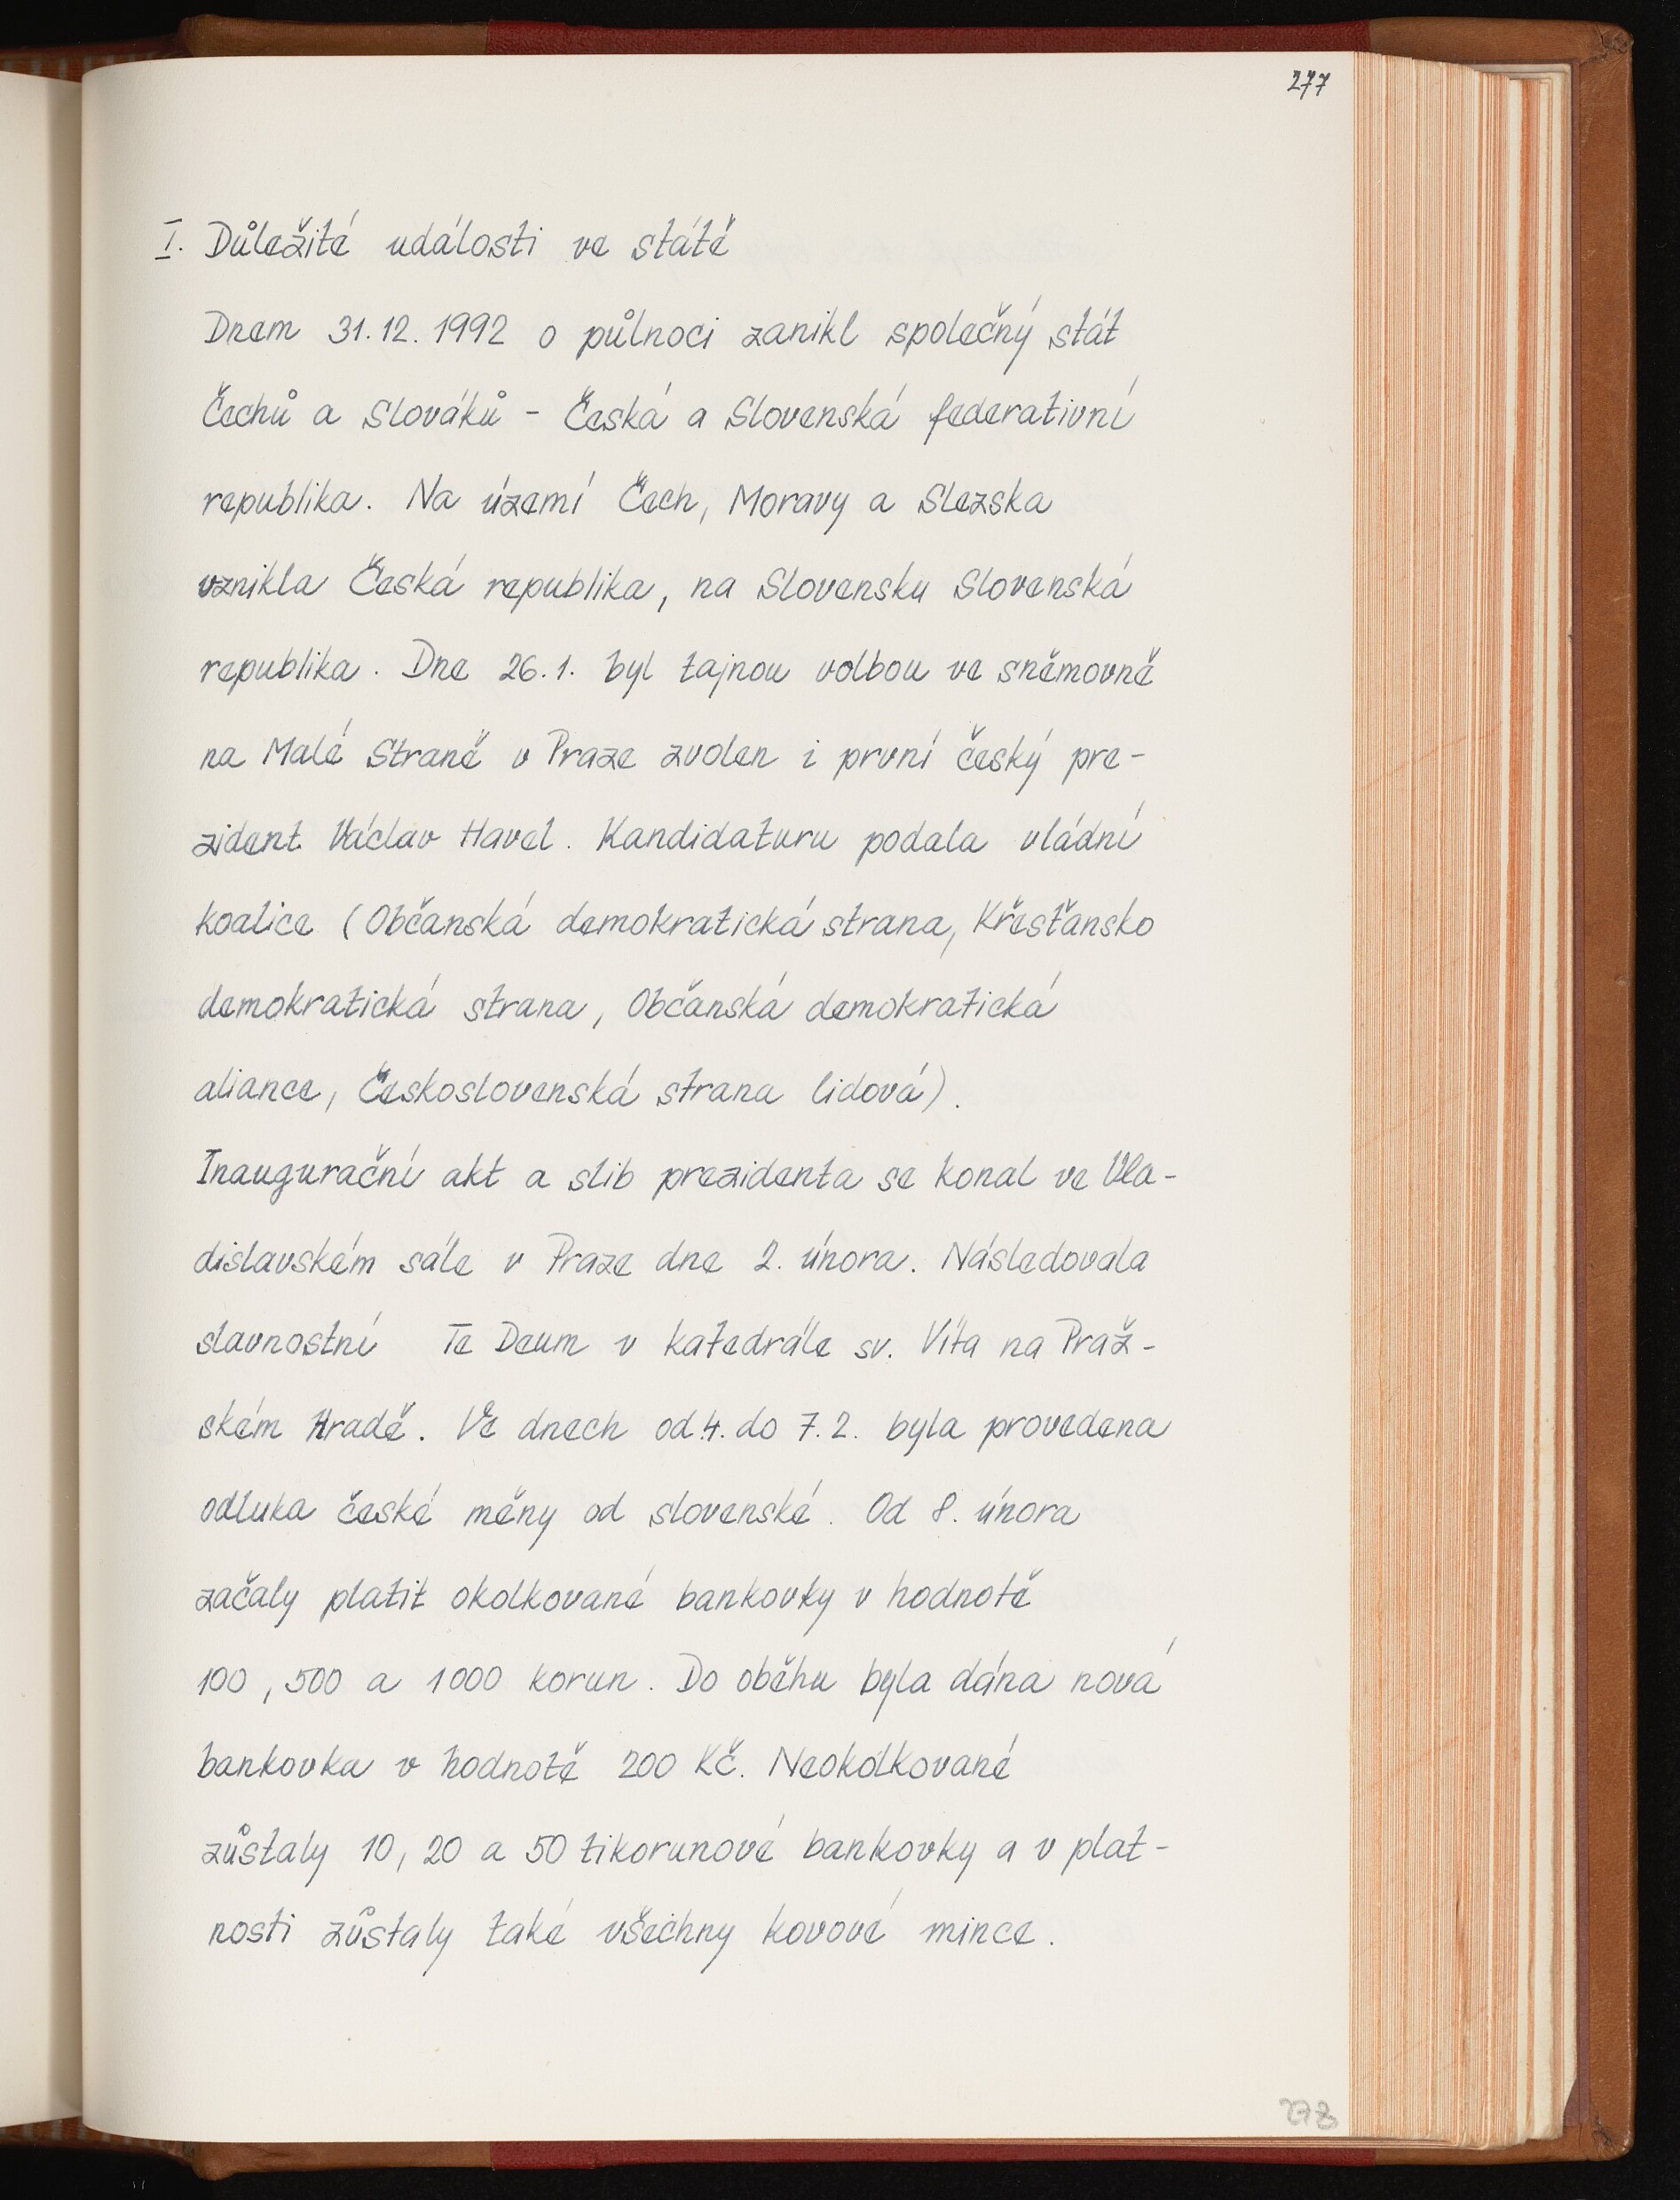 277
I. Důležité události ve státě
Dnem 31.12.1992 o půlnoci zanikl společný stát
Čechů a Slováků - Česká a Slovenská federativní
republika. Na území Čech, Moravy a Slezska
vznikla Česká republika, na Slovensku Slovenská
republika. Dne 26.1. byl tajnou volbou ve sněmovně
na Malé Straně v Praze zvolen i první český pre-
zident Václav Havel. Kandidaturu podala vládní
koalice (Občanská demokratická strana, Křesťansko
demokratická strana, Občanská demokratická
aliance, Československá strana lidová).
Inaugurační akt a slib prezidenta se konal ve Vla-
dislavském sále v Praze dne 2. února. Následovala
slavnostní Te Deum v katedrále sv. Víta na Praž-
ském Hradě. Ve dnech od 4. do 7.2. byla provedena
odluka české měny od slovenské. Od 8. února
začaly platit okolkované bankovky v hodnotě
100, 500 a 1000 korun. Do oběhu byla dána nová
bankovka v hodnotě 200 Kč. Neokolkované
zůstaly 10, 20 a 50 tikorunové bankovky a v plat-
nosti zůstaly také všechny kovové mince.
278